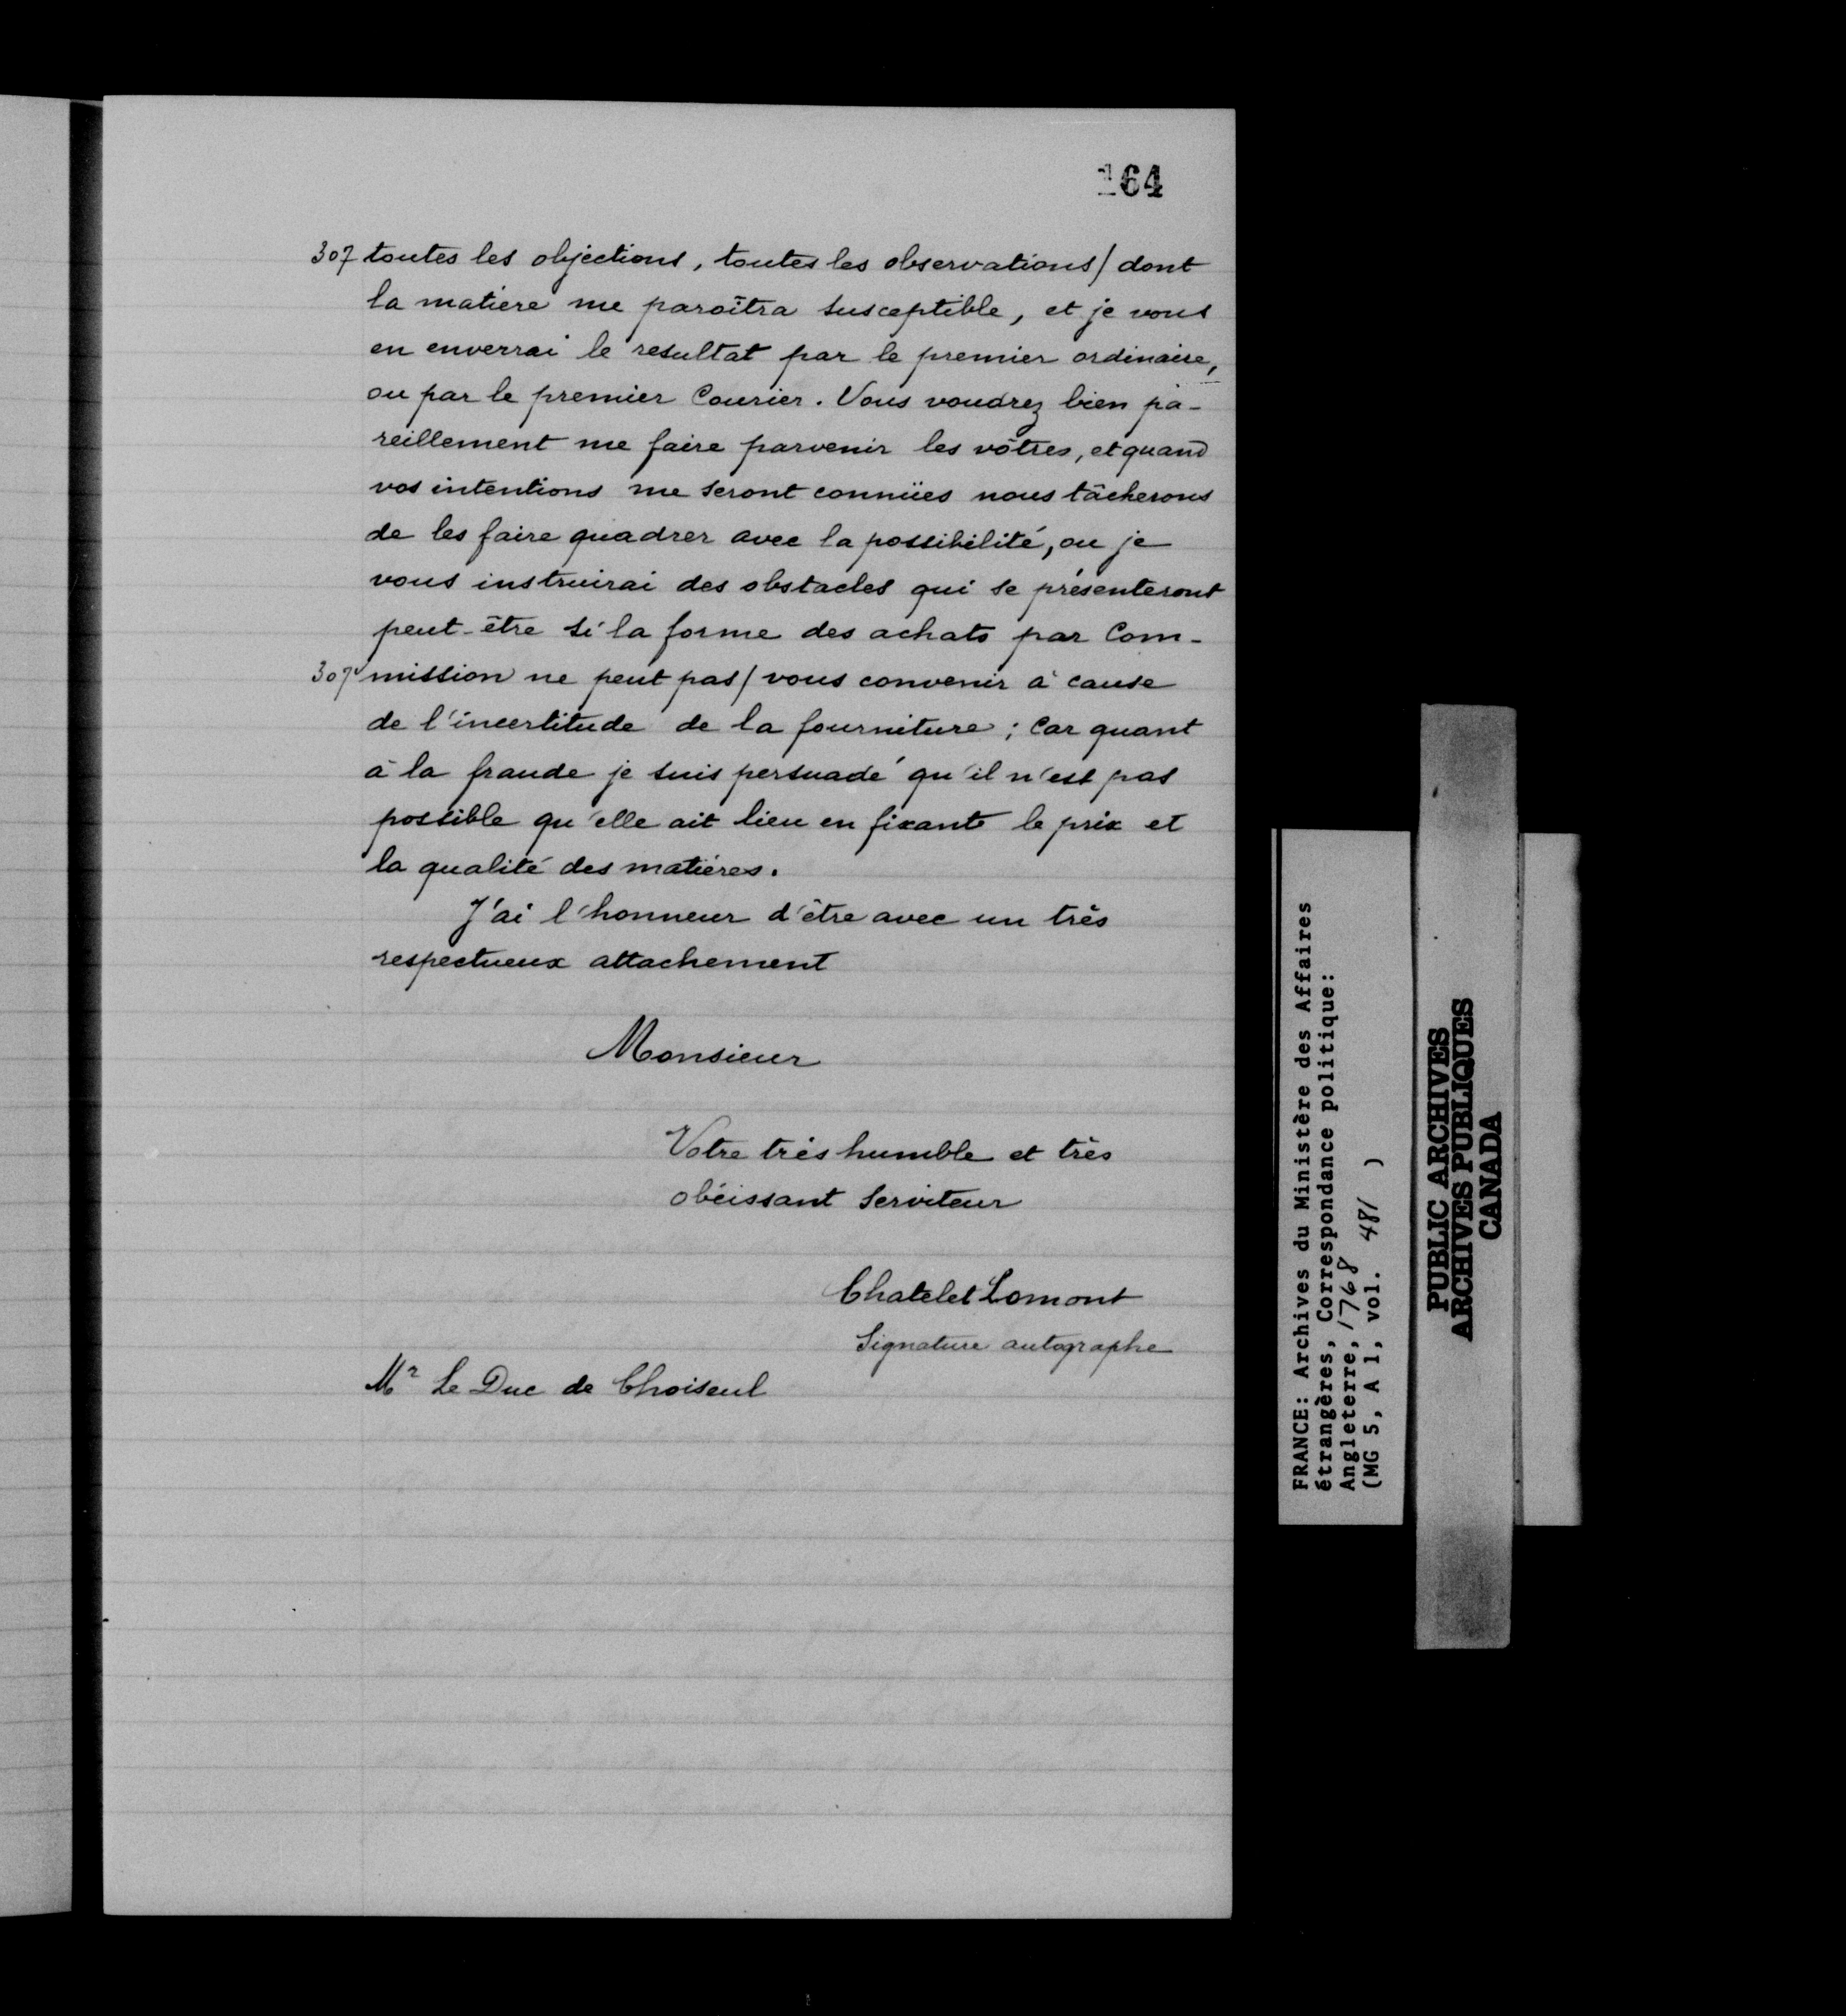 164
307 toutes les objections, toutes les observations/ dont
la matiere me paroîtra susceptible, et je vous
en enverrai le resultat par le premier ordinaire,
ou par le premier Courier. Vous voudrez bien pa-
reillement me faire parvenir les vôtres, et quand
vos intentions me seront connües nous tâcherons
de les faire quadrer avec la possibilité, ou je
vous instruirai des obstacles qui se présenteront
peut-être si la forme des achats par Com-
307v mission ne peut pas/ vous convenir à cause
de l'incertitude de la fourniture; Car quant
à la fraude je suis persuadé qu'il n'est pas
possible qu'elle ait lieu en fixant le prix et
la qualité des matières.
J'ai l'honneur d'être avec un très
respectueux attachement
Monsieur
Votre très humble et très
obéissant Serviteur
Chatelet Lomont
Signature autographe
Mr Le Duc de Choiseul
FRANCE: Archives du Ministère des Affaires
étrangères, Correspondance politique:
Angleterre, 1768
(MG 5, A 1, vol. 481 )
PUBLIC ARCHIVES
ARCHIVES PUBLIQUES
CANADA